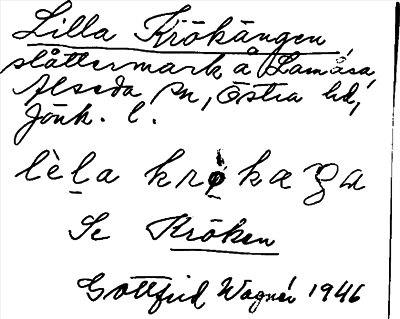 Lilla Krökängen,
slåttermark å Lamåsa,
Alseda sn, Östra hd,
Jönk. l.
lè̱la krø̱kæŋa
Se Kröken
Gottfrid Wagnér 1946